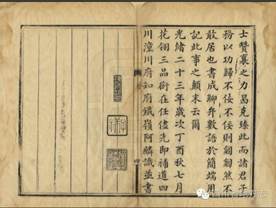 士贊襄之力曷克臻此而諸君子
務以功歸不佞不佞則 然不
敢居也書成聊弁數語於簡端用
記此事之顛末云爾
光緒二十三年歲次丁酉秋七月
花翎三品銜在任儘先即補道四
川潼川府知府鐵嶺阿麟識並書